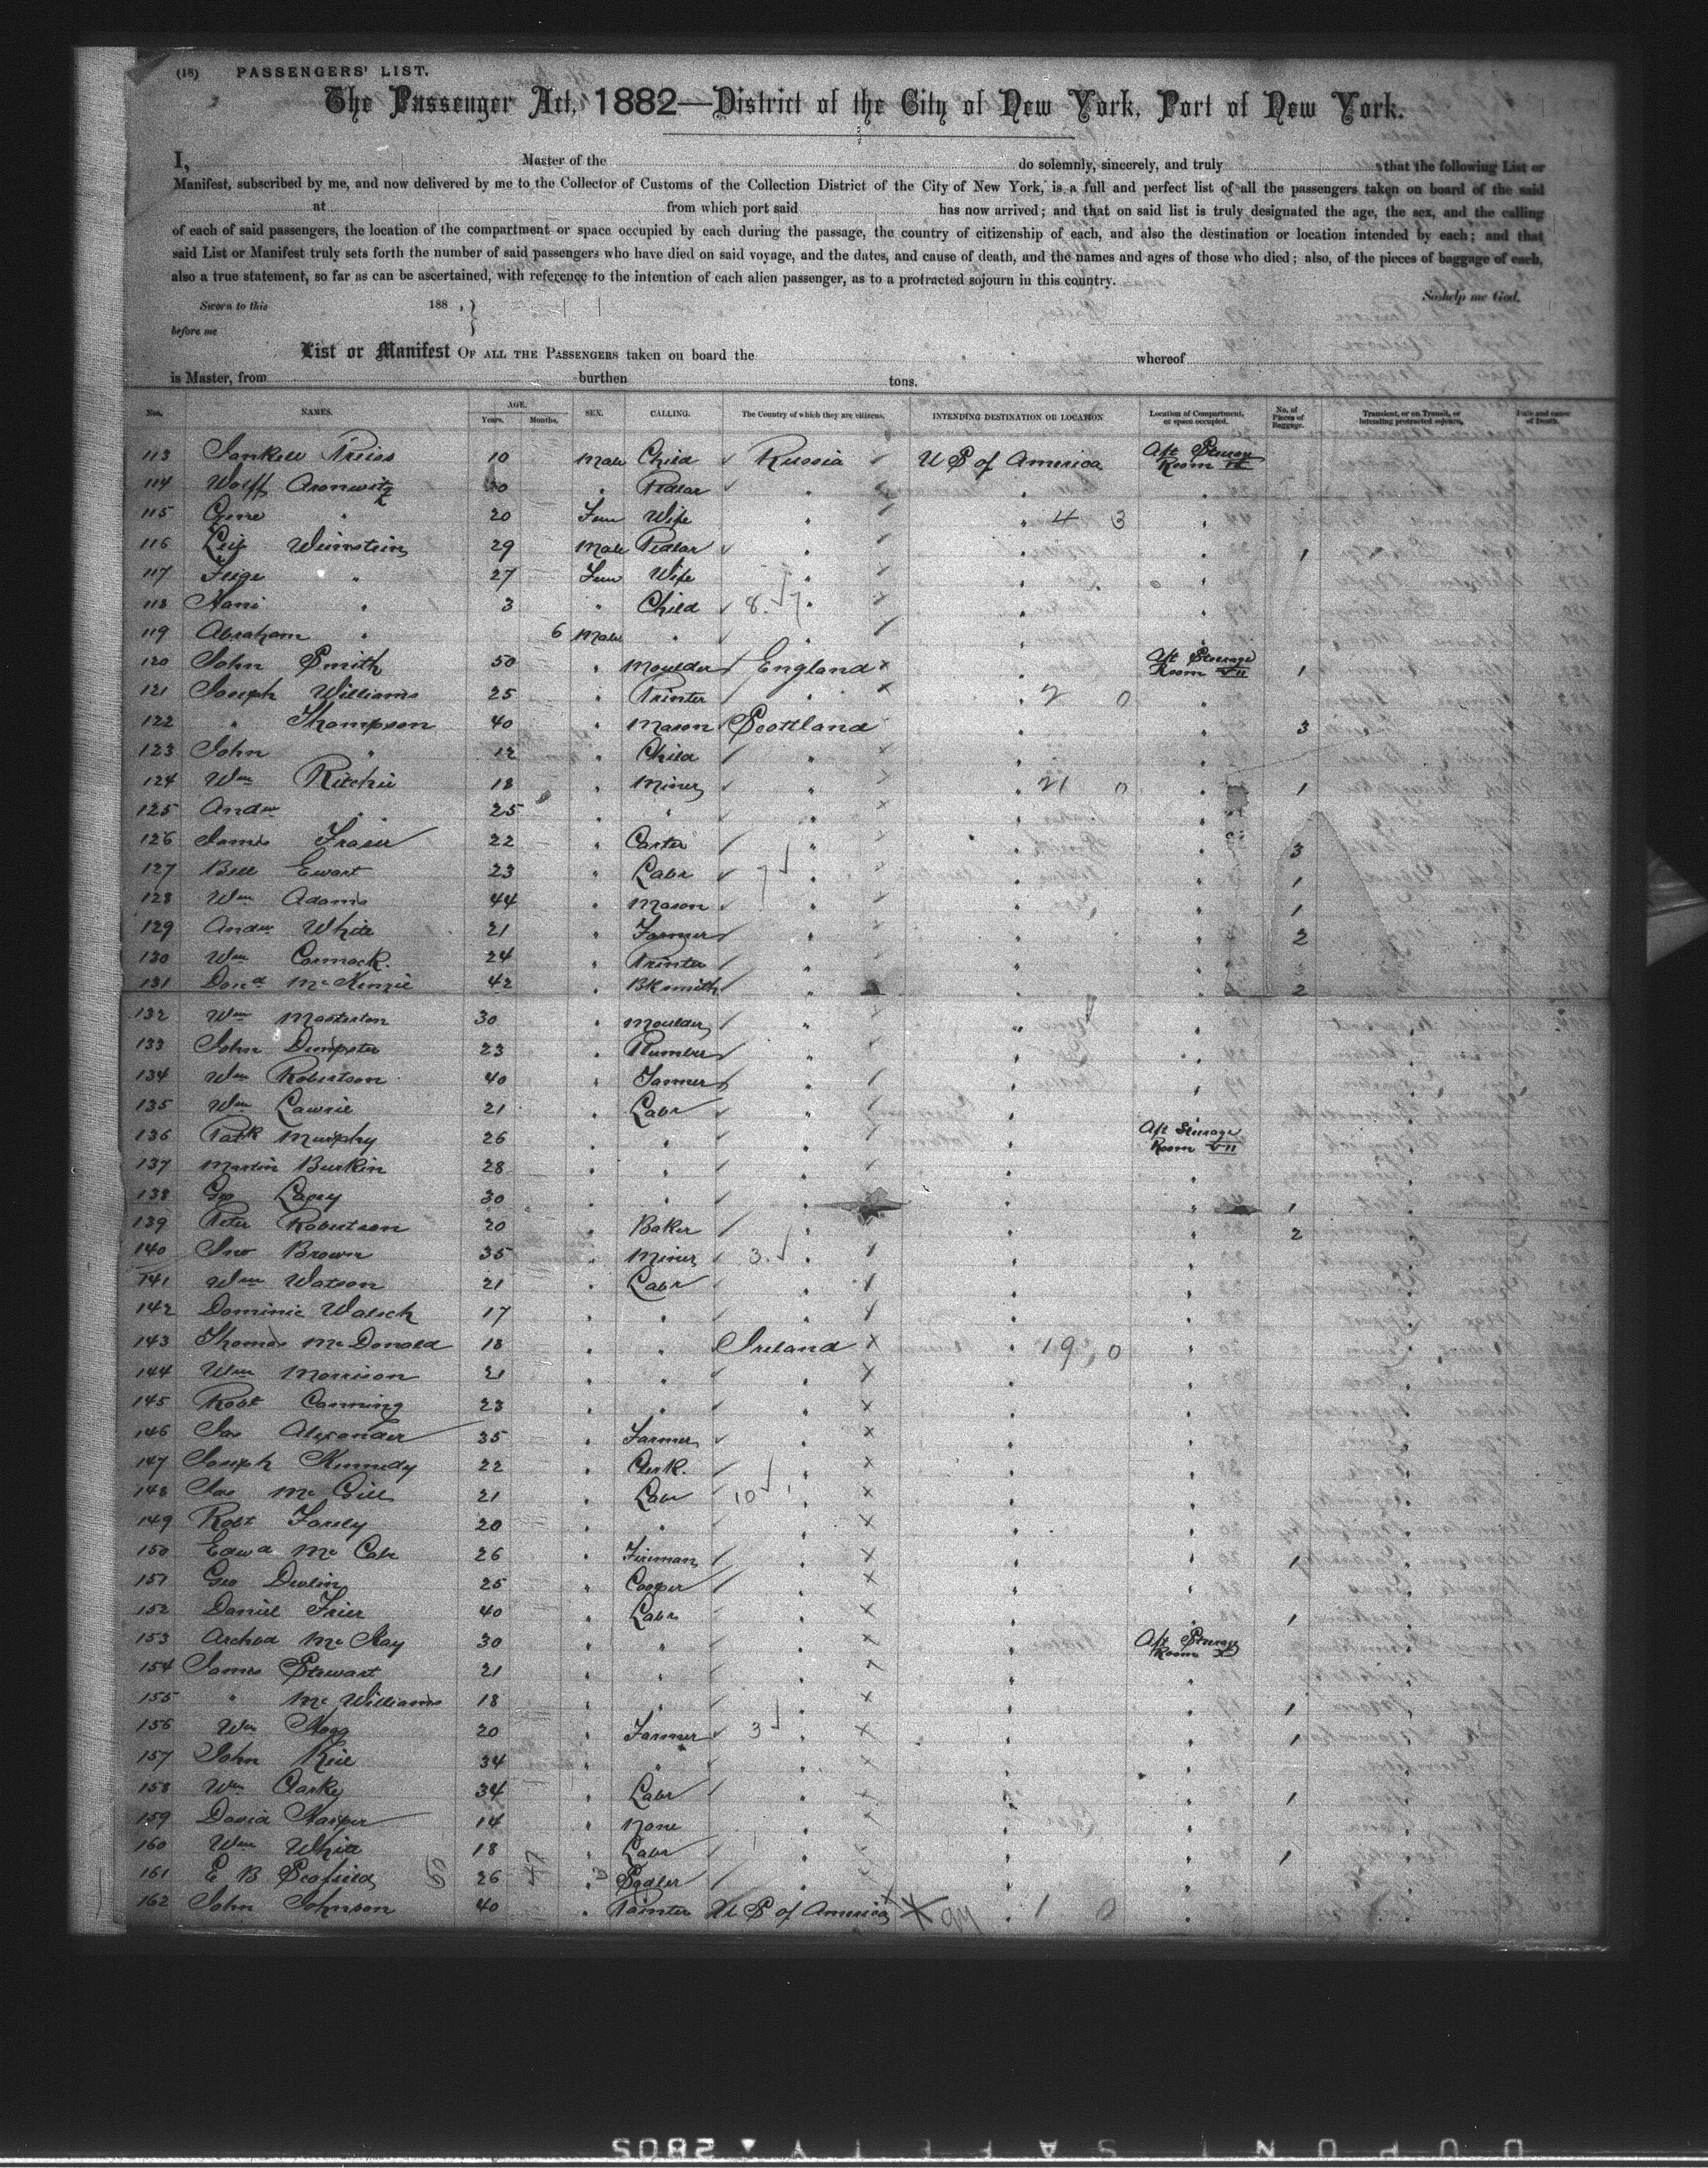 (18) PASSENGERS' LIST.
The Passenger Act, 1882—District of the City of New York, Port of New York.
I, Master of the do solemnly, sincerely, and truly that the following List or
Manifest, subscribed by me, and now delivered by me to the Collector of Customs of the Collection District of the City of New York, is a full and perfect list of all the passengers taken on board of the said
at from which port said has now arrived; and that on said list is truly designated the age, the sex, and the calling
of each of said passengers, the location of the compartment or space occupied by each during the passage, the country of citizenship of each, and also the destination or location intended by each; and that
said List or Manifest truly sets forth the number of said passengers who have died on said voyage, and the dates, and cause of death, and the names and ages of those who died; also, of the pieces of baggage of each,
also a true statement, so far as can be ascertained, with reference to the intention of each alien passenger, as to a protracted sojourn in this country.
Sworn to this 188 , } So help me God.
before me
List or Manifest OF ALL THE PASSENGERS taken on board the whereof
is Master, from burthen tons.
Nos. NAMES. AGE. Years. Months. SEX. CALLING. The Country of which they are citizens. INTENDING DESTINATION OR LOCATION Location of Compartment, or space occupied. No. of Pieces of Baggage. Transient, or on Transit, or intending protracted sojourn. Date and cause of Death.
113 Jankew Preiss 10 Male Child Russia U S of America Aft Steerage Room
114 Wolff Aronwitz " Pedlar " " "
115 " 20 Fem Wife " " 4 3 "
116 Leib Weinstein 29 Male Pedlar " " " 1
117 Feige " 27 Fem Wife " " "
118 Hani " 3 " Child 8 7 " " "
119 Abraham " 6 Male " " " "
120 John Smith 50 " Moulder England " Aft Steerage Room VII 1
121 Joseph Williams 25 " Printer " " 2 0 "
122 " Thompson 40 " Mason Scottland " " 3
123 John " 12 " Child " " "
124 Wm Ritchie 18 " Miner " " 21 0 " 1
125 Andw " 25 " " " " "
126 James Fraser 22 " Carter " " " 3
127 Bell Ewart 23 " Labr 7 " " " 1
128 Wm Adams 44 " Mason " " " 1
129 Andw White 21 " Farmer " " " 2
130 Wm Cormack. 24 " Printer " " "
131 Dond McKenzie 42 " Bksmith " " " 2
132 Wm Masterton 30 " Moulder " " "
133 John Dempster 23 " Plumber " " "
134 Wm Robertson 40 " Farmer " " "
135 Wm Lawrie 21 " Labr " " "
136 Patk Murphy 26 " " " " Aft Steerage Room VII
137 Martin Burkin 28 " " " " "
138 Geo Lacey 30 " " " " " 1
139 Peter Robertson 20 " Baker " " " 2
140 Jno Brown 35 " Miner 3 " " "
141 Wm Watson 21 " Labr " " "
142 Dominic Walsch 17 " " " " "
143 Thomas McDonald 18 " " Ireland " 19, 0 "
144 Wm Morrison 21 " " " " "
145 Robt Canning 23 " " " " "
146 Jas Alexander 35 " Farmer " " "
147 Joseph Kennedy 22 " Clerk. " " "
148 Jas McGill 21 " Labr 10 " " "
149 Robt Farely 20 " " " " "
150 Edwd McCabe 26 " Fireman " " " 1
151 Geo Devlin 25 " Cooper " " "
152 Daniel Frier 40 " Labr " " " 1
153 Archbd McKay 30 " " " " Aft Steerage Room X
154 James Stewart 21 " " " " "
155 " McWilliams 18 " " " " " 1
156 Wm Hogg 20 " Farmer 3 " " " 1
157 John Keil 34 " " " " "
158 Wm Clarke 34 " Labr " " " 1
159 David Harper 14 " None " " "
160 Wm White 18 " Labr " " " 1
161 E B Scofield 26 47 " 3 Sadler " " "
162 John Johnson 40 " Painter U S of America " 1 0 "